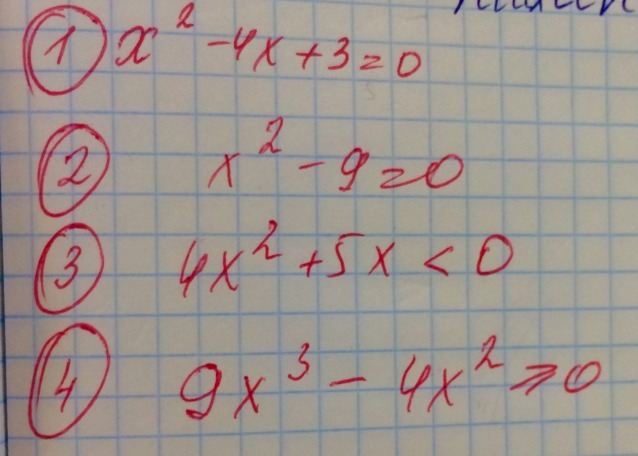 ① x² - 4x + 3 = 0
② x² - 9 = 0
③ 4x² + 5x < 0
④ 9x³ - 4x² ⩾ 0